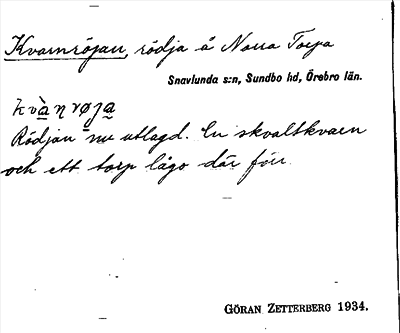 Kvarnröjan, rödja å Norra Torpa
Snavlunda s:n, Sundbo hd, Örebro län.
kvàɳrøja
Rödjan nu utlagd. En skvaltkvarn
och ett torp lågo där förr.
GÖRAN ZETTERBERG 1934.